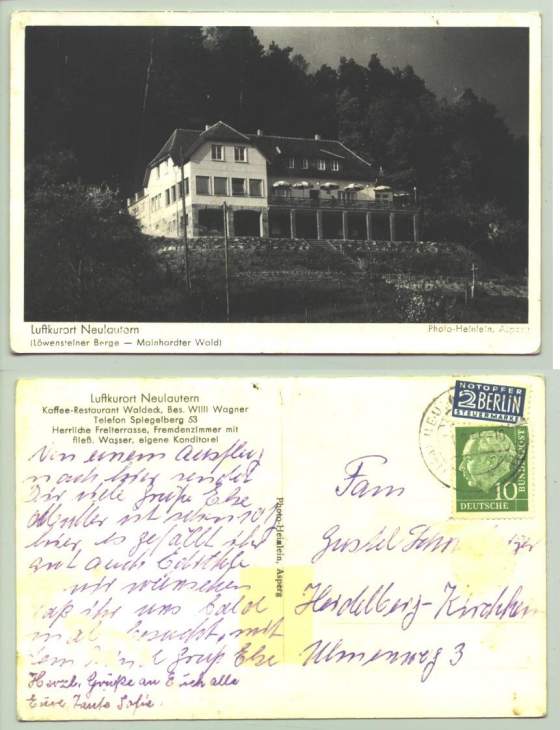 Luftkurort Neulautern
(Löwensteiner Berge — Mainhardter Wald)
Photo-Heinlein, Asperg
Luftkurort Neulautern
Kaffee-Restaurant Waldeck, Bes. Willi Wagner
Telefon Spiegelberg 53
Herrliche Freiterrasse, Fremdenzimmer mit
fließ. Wasser, eigene Konditorei
Von einem Ausflug
nach hier sendet
Dir viele Grüße Else
Müller ist
hier, es gefällt
gut auch
wir wünschen
daß ihr uns bald
mal besucht, mit
Gruß Else
Herzl. Grüße an Euch alle
Eure Tante Sofie
Photo-Heinlein, Asperg
NOTOPFER
2 BERLIN
STEUERMARKE
10
DEUTSCHE
BUNDESPOST
Fam
Gustel
Heidelberg-Kirchheim
Ulmenweg 3